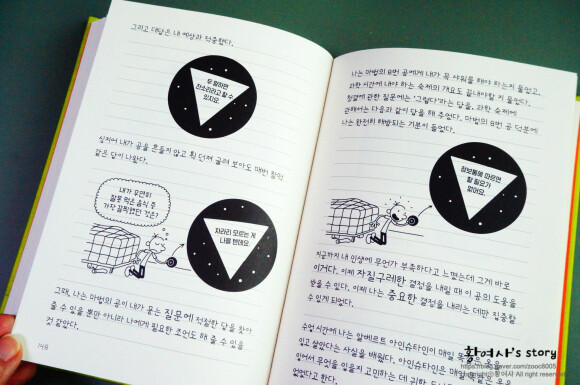 그리고 대답은 내 예상과 적중했다.
두 말하면
잔소리라고 할 수
있지요.
심지어 내가 공을 흔들지 않고 휙 던져 굴려 보아도 매번 칼럼
같은 답이 나왔다.
내가 우연히
잘못 먹은 음식 중
가장 끔찍했던 것은?
차라리 모르는 게
나을 텐데요.
그때, 나는 마법의 공이 내가 묻는 질문에 적절한 답을 찾아
줄 수 있을 뿐만 아니라 나에게 필요한 조언도 해 줄 수 있을
것 같았다.
148
나는 마법의 8번 공에게 내가 꼭 샤워를 해야 하는지 물었고,
과학 시간에 내야 하는 숙제의 개요도 끝내야할 지 물었다.
청결에 관한 질문에는 '그렇다'라는 답을, 과학 숙제에
관해서는 다음과 같이 답을 해 주었다. 마법의 8번 공 덕분에
나는 완전히 해방되는 기분이 들었다.
정보통에 따르면
할 필요가
없어요.
지금까지 내 인생에 무언가 부족하다고 느꼈는데 그게 바로
이거다. 이제 자질구레한 결정을 내릴 때 이 공의 도움을
받을 수 있다. 이제 나는 중요한 결정을 내리는 데만 집중할
수 있게 되었다.
수업 시간에 나는 알베르트 아인슈타인이 매일 똑같은 옷을
입고 살았다는 사실을 배웠다. 아인슈타인은 매일
있어서 무엇을 입을지 고민하는 데
없었다고 한다.
황여사's story
https://blog.naver.com/zooc8005
Copyright ⓒ황여사 All rights reserved